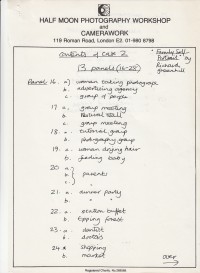 HALF MOON PHOTOGRAPHY WORKSHOP
and
CAMERAWORK
119 Roman Road, London E2. 01-980 8798
contents of case 2
"Family Self-Portrait" by Richard Greenhill
13 panels (16-28)
Panel: 16. a) woman taking photograph
b. advertising agency
c. group of people
17. a. group meeting
b.
c. group meeting
18. a. tutorial group
b. photography group
19. a. woman drying hair
b. feeding baby
20. a)
b) parents
c)
21. a. dinner party
b. "
22. a. station buffet
b. Epping forest
23. a. dentist
b. doctors
24. a. shopping
b. market
over